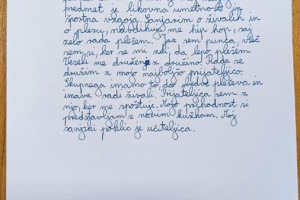 predmet je likovna umetnost in
športna vzgoja. Sanjarim o živalih in
o plesu, navdihuje me hip hop, saj
zelo rada plešem. Jaz sem punca, všeč
sem si, ker se mi zdi, da lepo plešem.
Veseli me druženje z družino. Rada se
družim z mojo najboljšo prijateljico.
Skupnega imamo to da obedve pleševa in
imava radi živali. Prijateljica sem z
njo, ker me spoštuje. Mojo prihodnost si
predstavljam z novim kužkom. Moj
sanjski poklic je učiteljica.